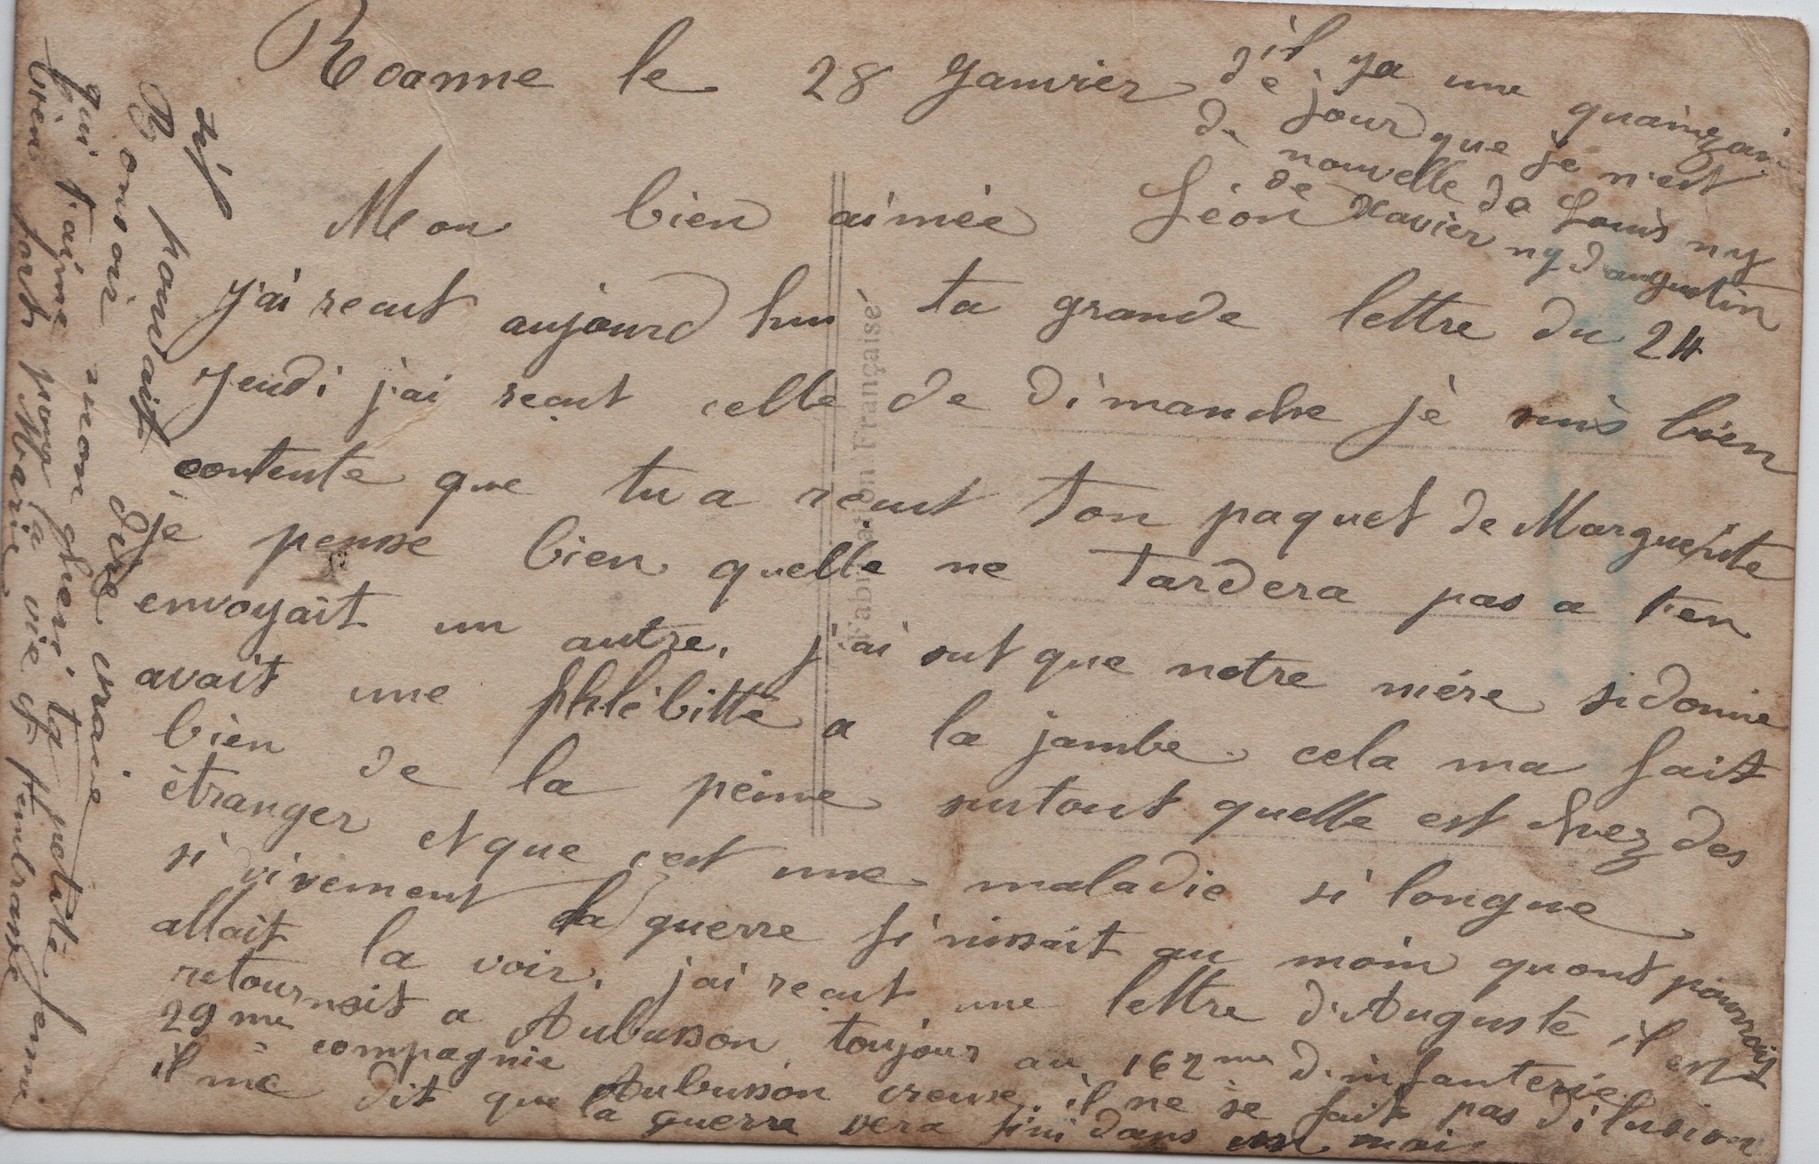 Roanne le 28 Janvier
il ya une quainzai
de jour que je n'est
de nouvelle de Louis ny
de Xavier ny d'augustin
Mon bien aimée Léon
J'ai reçut aujourd hui ta grande lettre du 24
Jeudi j'ai reçut celle de dimanche jè suis bien
contente que tu a reçut ton paquet de Marguerite
je pense bien quelle ne tardera pas a t'en
envoyait un autre, j'ai sut que notre mère sidonie
avait une phlébitte a la jambe cela ma fait
bien de la peine surtout quelle est chez des
étranger et que c'est une maladie si longue
si vivement la guerre finissait au moin quont pourrait
allait la voir, j'ai reçut une lettre d'Auguste il est
retournait a Aubusson toujour au 162me d'infanterie
29me compagnie Aubusson creuse, il ne se fait pas d'ilusion
il me dit que la guerre sera fini dans un moi
Bonsoir mon
qui t'aime pour la vie et t'embrasse
bien fort Marie
Fabrication Française